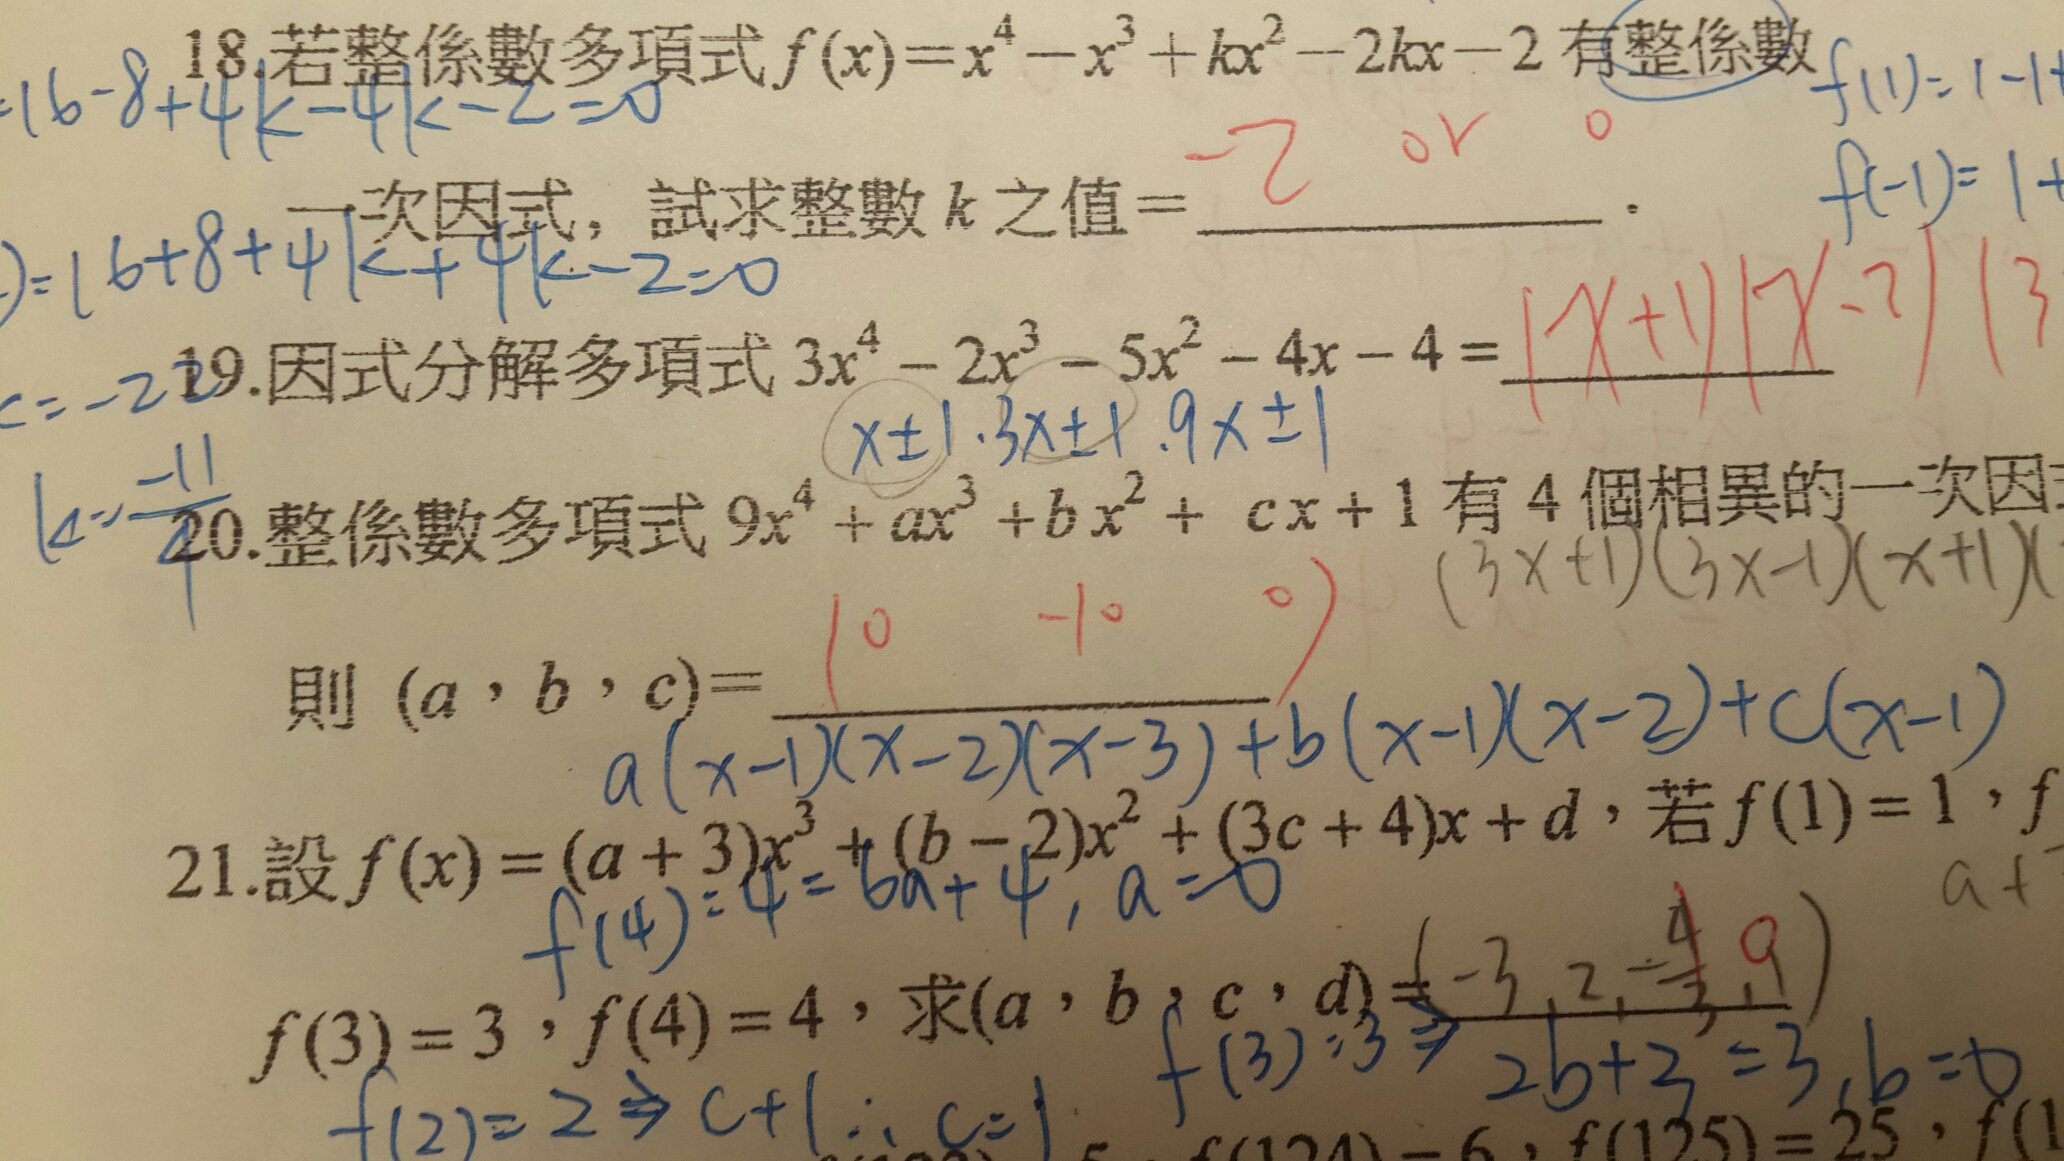 18.若整係數多項式 f(x)=x⁴-x³+kx²-2kx-2 有整係數
f(1)=1-1+
=16-8+4k-4k-2=0
-2 or 0
f(-1)=1+
一次因式，試求整數 k 之值= .
)=16+8+4k+4k-2=0
19.因式分解多項式 3x⁴-2x³-5x²-4x-4=(x+1)(x-2)(3
=-22
x±1.3x±1.9x±1
k=-11/4
20.整係數多項式 9x⁴+ax³+bx²+cx+1 有 4 個相異的一次因
(3x+1)(3x-1)(x+1)(
則 (a,b,c)=(0 -10 0)
a(x-1)(x-2)(x-3)+b(x-1)(x-2)+c(x-1)
21.設 f(x)=(a+3)x³+(b-2)x²+(3c+4)x+d,若 f(1)=1,f
a+
f(4)=4=6a+4, a=0
f(3)=3,f(4)=4,求(a,b,c,d)=(-3,2,- , )
f(3)=3⇒2b+3=3,b=0
f(2)=2⇒c+1∴c=1
f(124)=6,f(125)=25,f(1